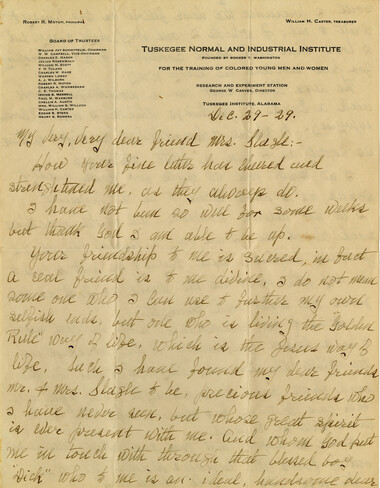 ROBERT R. MOTON, PRINCIPAL
WILLIAM H. CARTER, TREASURER
BOARD OF TRUSTEES
TUSKEGEE NORMAL AND INDUSTRIAL INSTITUTE
FOUNDED BY BOOKER T. WASHINGTON
FOR THE TRAINING OF COLORED YOUNG MEN AND WOMEN
RESEARCH AND EXPERIMENT STATION
GEORGE W. CARVER, DIRECTOR
TUSKEGEE INSTITUTE, ALABAMA
Dec. 29-29.
My Very, Very dear Friend Mrs. Slagle:-
How your fine letter has cheered and
strengthened me, as they always do.
I have not been so well for some weeks
but thank God I am able to be up.
Your friendship to me is sacred, in fact
a real friend is to me divine, I do not mean
some one who I can use to further my own
selfish ends, but one who is living the "Golden
Rule" way of life, which is the Jesus way of
life. Such I have found my dear friends
Mr. & Mrs. Slagle to be, precious friends who
I have never seen, but whose great spirit
is ever present with me. And whom God put
me in touch with through that blessed boy
"Dick" who to me is an ideal, handsome dear